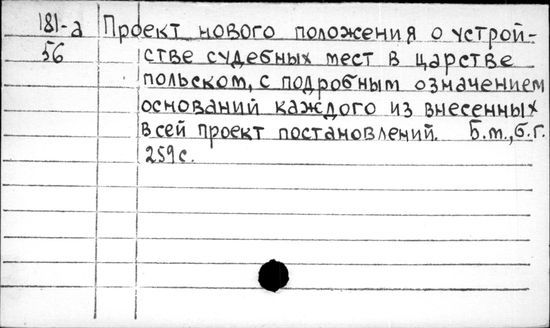 181-а Проект нового положения о устрой-
56 стве судебных мест в царстве
польском, с подробным означением
оснований каждого из внесенных
в сей проект постановлений. Б.м., б.г.
259с.